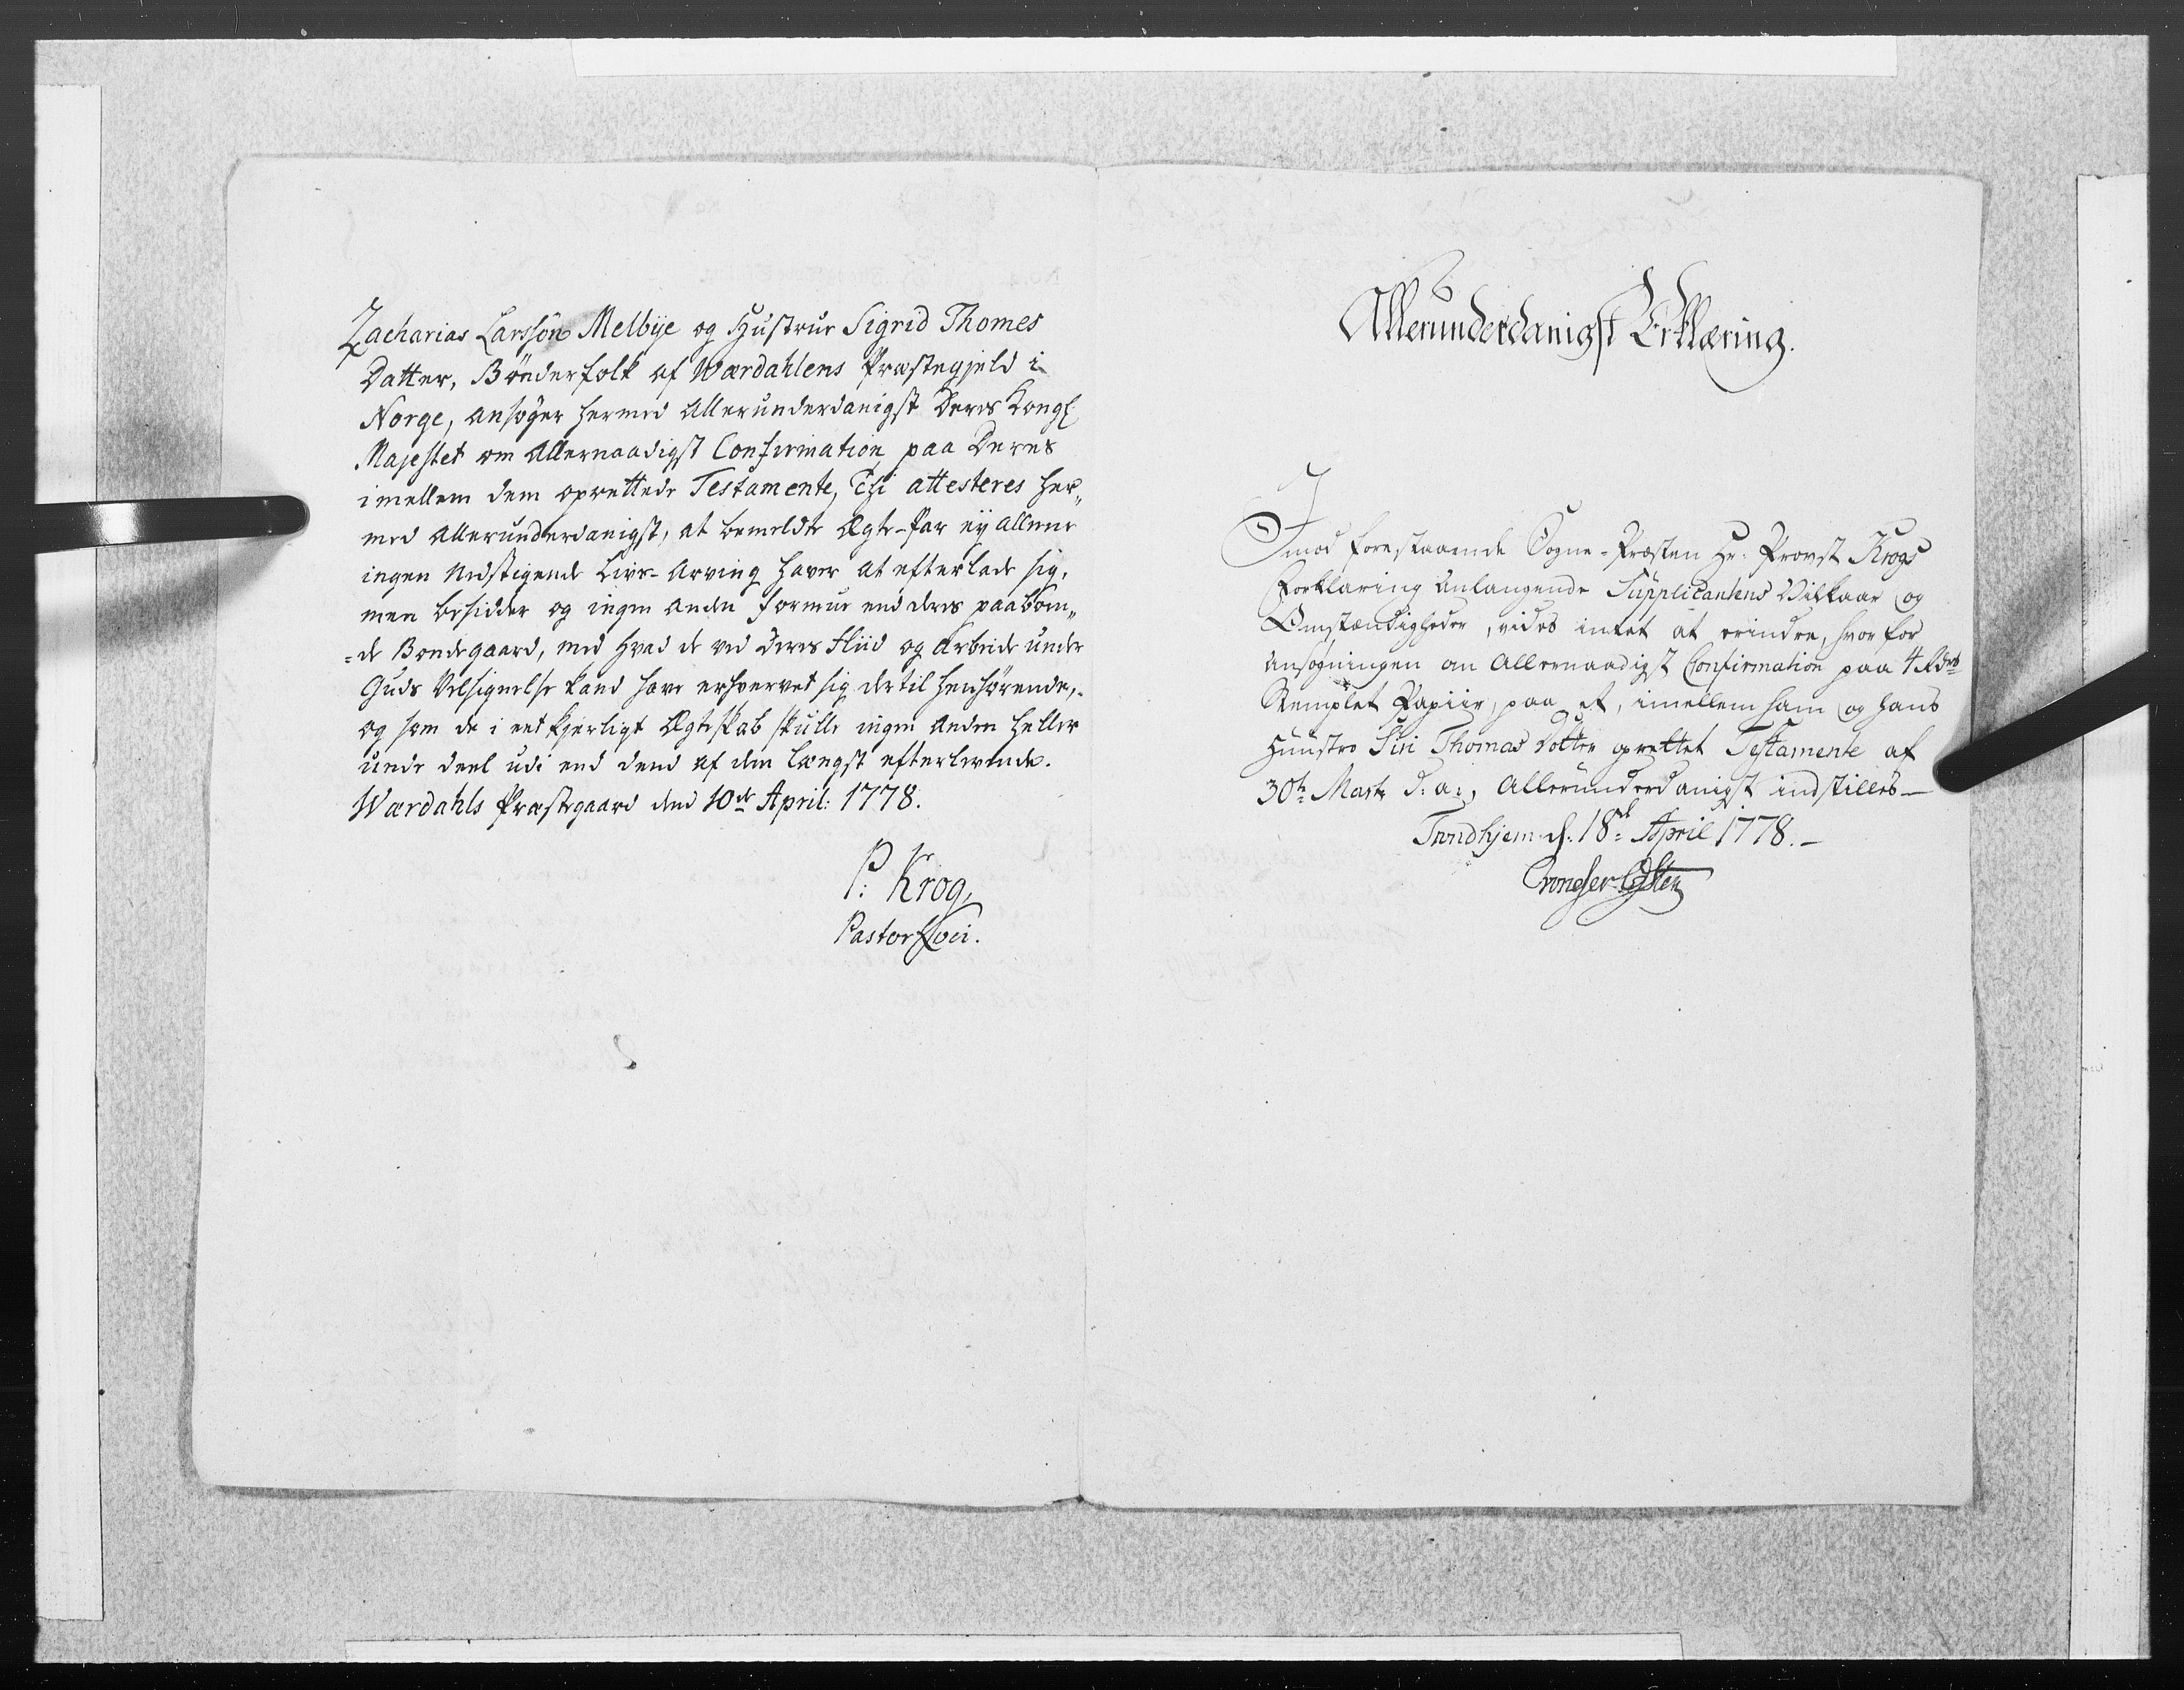 Zacharias Larssön Melbÿe og Hustrue Sigrid Thomes
Datter, Bönderfolk af Wærdahlens Præstegjeld i
Norge, ansøger hermed Allerunderdanigst Deres Kongl.
Majestet om Allernaadigst Confirmation paa Deres
imellem dem oprettede Testamente, Thi attesteres her„
med Allerunderdanigst, at bemeldte Ægte-Par eÿ allene
ingen Nedstigende Livs-Arving haver at efterlade sig,
men besidder og ingen anden Formue end deres paaboen„
=de Bondegaard, med hvad de ved deres Fliid og Arbeide under
Guds Velsignelse kand have erhvervet sig dertil henhørende,
og som de i eet kjerligt Ægteskab skulle ingen anden heller
unde deel udi end dend af dem længst efterlevende.
Wærdahls Præstegaard dend 10de April: 1778.
P: Krog,
Pastor Loci.
Allerunderdanigst Erklæring.
Imod forestaaende Sogne-Præsten Hr: Provst Krogs
Forklaring anlangende Supplicantens Vilkaar og
Omstændigheder, vides intet at erindre, hvorfor
ansøgningen om Allernaadigst Confirmation paa 4 Rdrs
Stemplet Papiir, paa et, imellem ham og hans
Huustro Siri Thomas Dotter oprettet Testamente af
30te Marti d: a:, Allerunderdanigst indstilles
Trondhjem d: 18de April 1778.